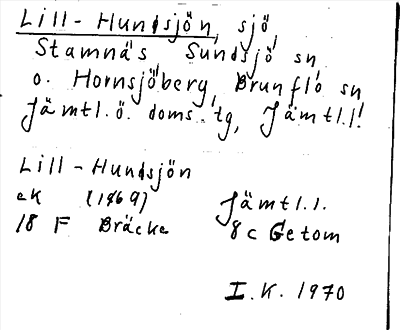 Lill-Hundsjön, sjö,
Stamnäs, Sundsjö sn
o. Hornsjöberg, Brunflo sn
Jämtl.ö. doms. tg, Jämtl.l!
Lill-Hundsjön
ek (1969) Jämtl.l.
18 F Bräcke 8c Getom
I.K. 1970